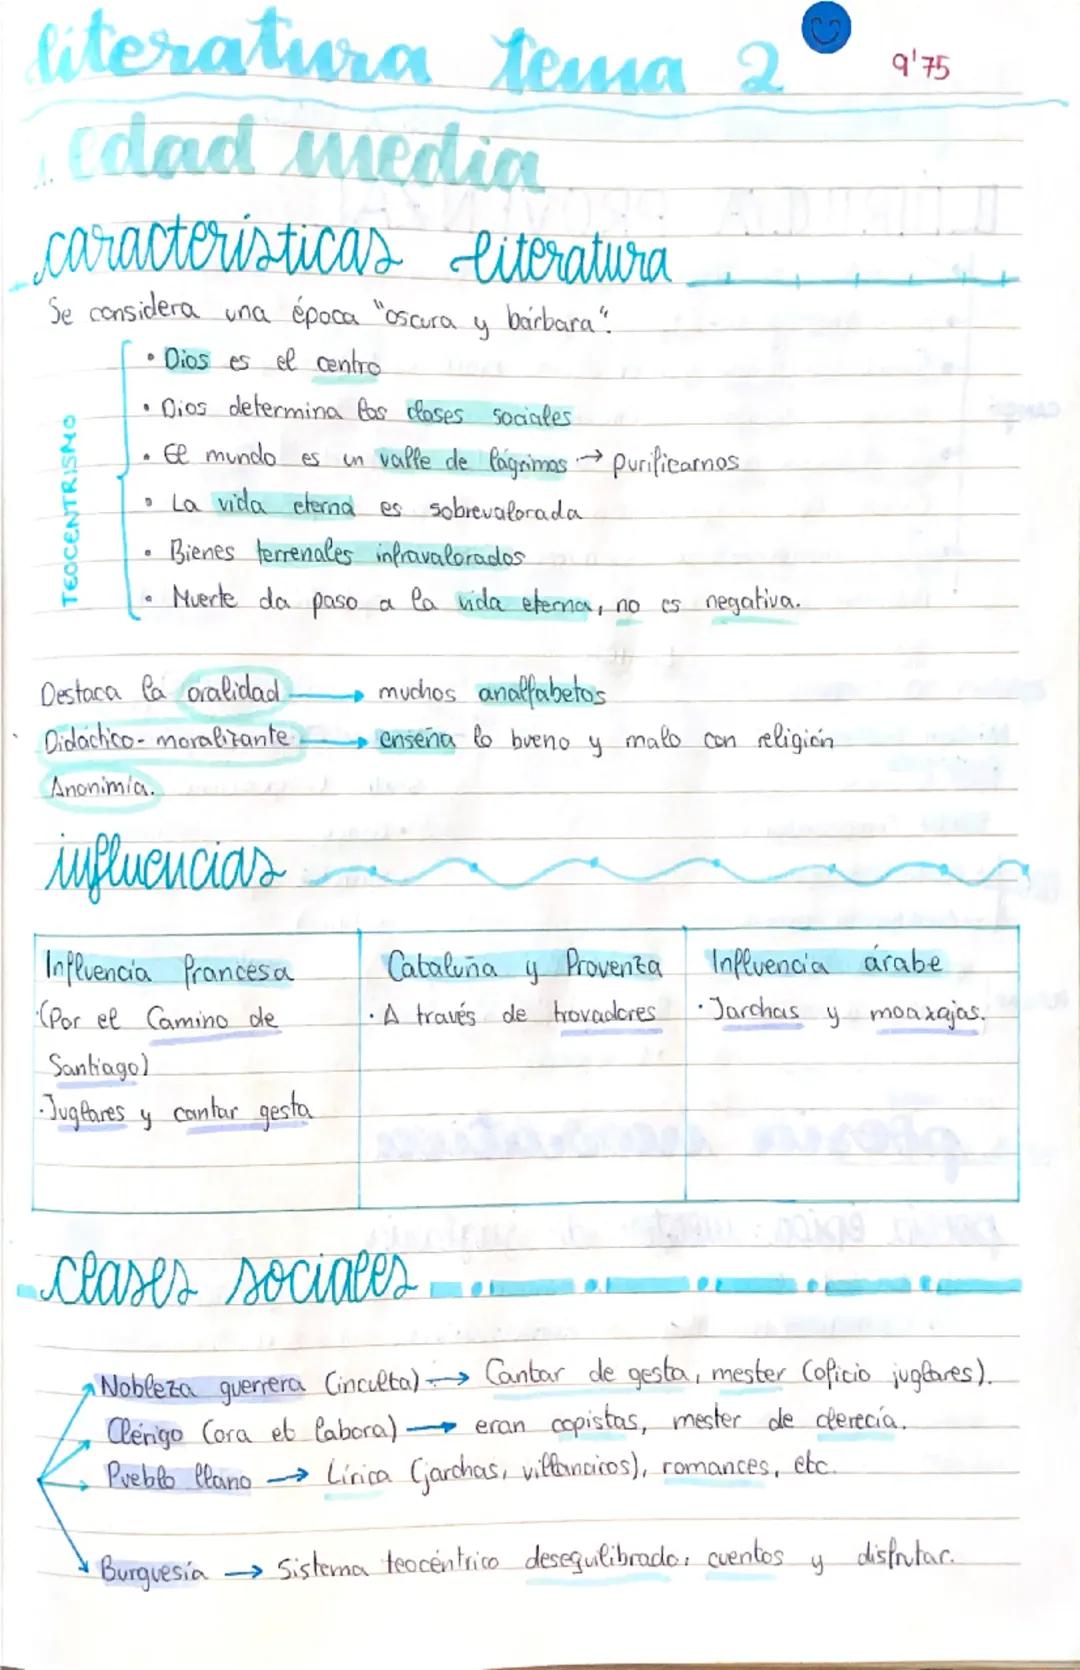 literatura tema 2
9'75
1. edad media
características literatura
Se considera una época "oscura y bárbara".
TEOCENTRISMO
• Dios es el centro
• Dios determina las clases sociales
• El mundo es un valle de lágrimas → purificarnos
• La vida eterna es sobrevalorada
• Bienes terrenales infravalorados
• Muerte da paso a la vida eterna, no es negativa.
Destaca la oralidad → muchos analfabetos
Didáctico-moralizante → enseña lo bueno y malo con religión
Anonimia.
influencias
Influencia francesa
(Por el Camino de
Santiago)
·Juglares y cantar gesta
Cataluña y Provenza
·A través de trovadores
Influencia árabe
·Jarchas y moaxajas.
clases sociales
Nobleza guerrera (inculta) → Cantar de gesta, mester (oficio juglares).
Clérigo (ora et labora) → eran copistas, mester de clerecía.
Pueblo llano → Lírica (jarchas, villancicos), romances, etc.
Burguesía → Sistema teocéntrico desequilibrado: cuentos y disfrutar.